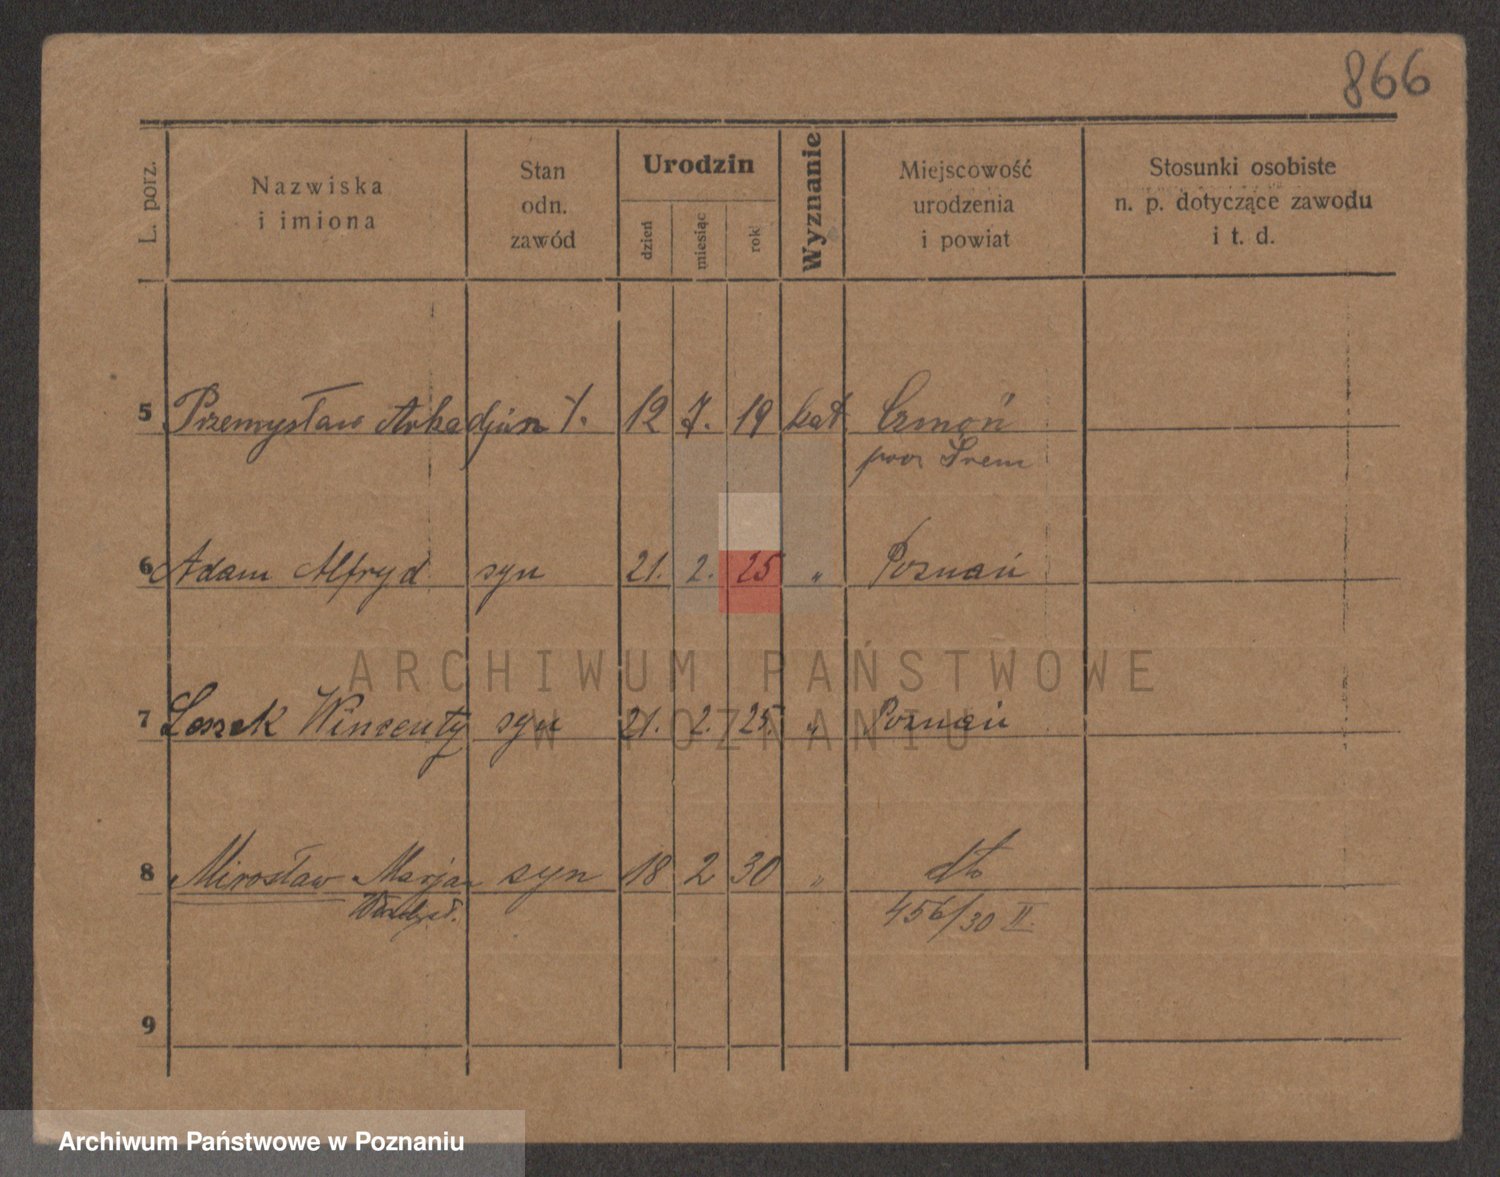 866
L. porz.
Nazwiska
i imiona
Stan
odn.
zawód
Urodzin
dzień
miesiąc
rok
Wyznanie
Miejscowość
urodzenia
i powiat
Stosunki osobiste
n. p. dotyczące zawodu
i t. d.
5 Przemysław Arkadjusz 12 7. 19 kat. Czmoń
pow Śrem
6 Adam Alfryd syn 21. 2. 25 „ Poznań
ARCHIWUM PAŃSTWOWE
7 Leszek Wincenty syn 21. 2. 25. „ Poznań
W POZNANIU
8 Mirosław Marjan syn 18 2 30 „ dto
456/30 II.
9
Archiwum Państwowe w Poznaniu